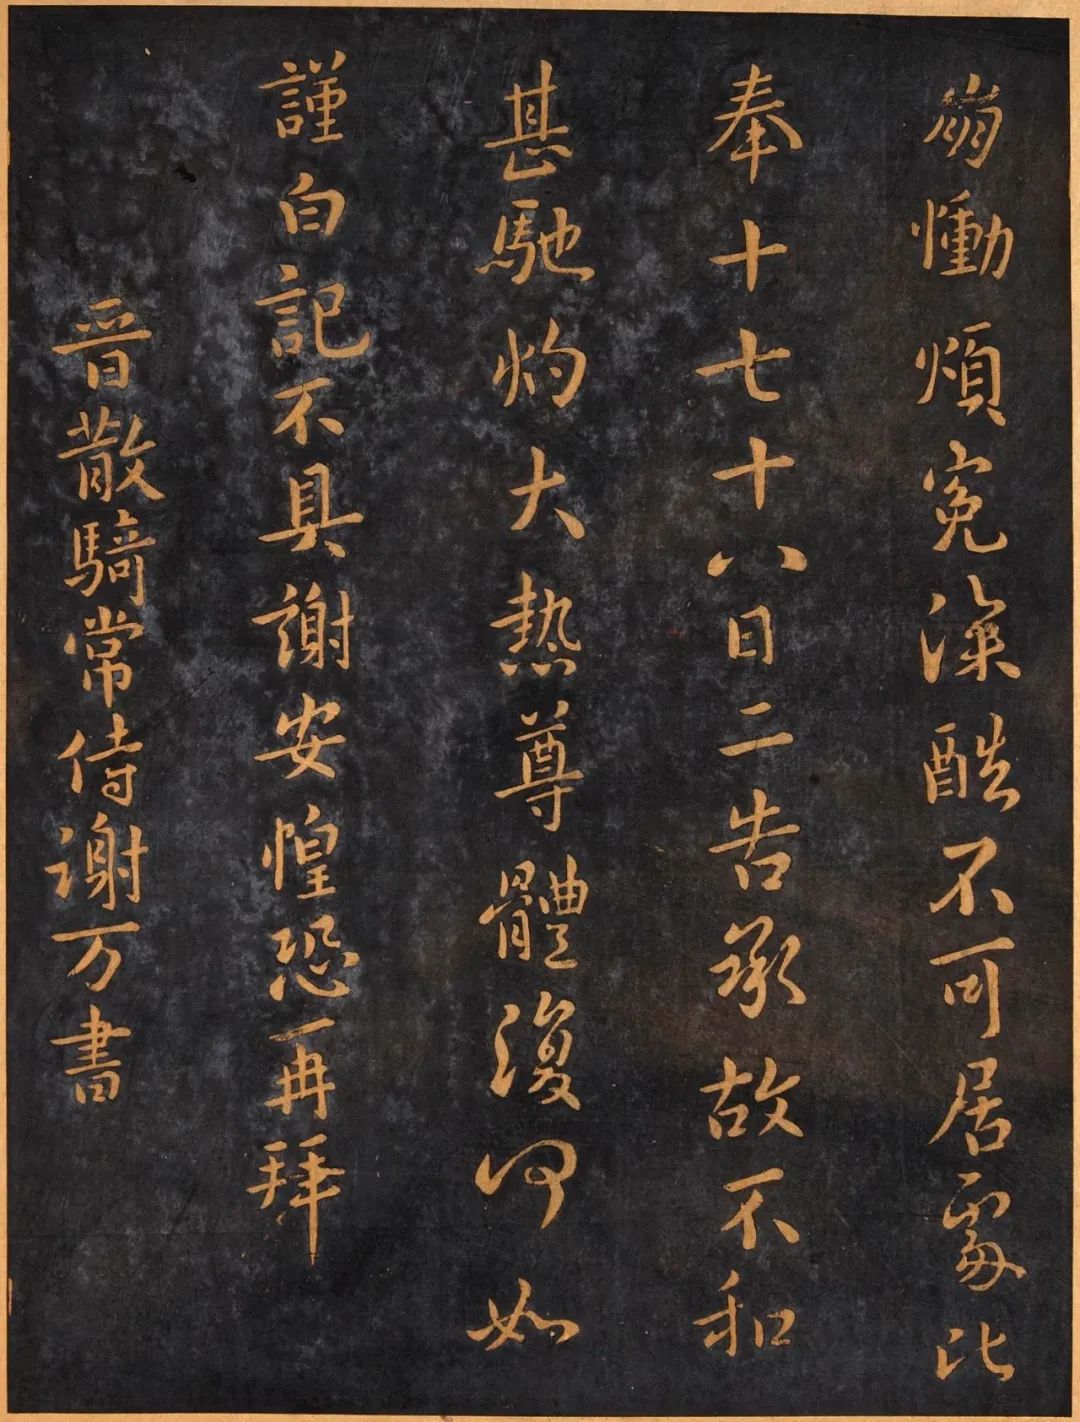 崩慟煩冤深酷不可居處比
奉十七十八日二告承故不和
甚馳灼大熱尊體復何如
謹白記不具謝安惶恐再拜
晉散騎常侍謝万書